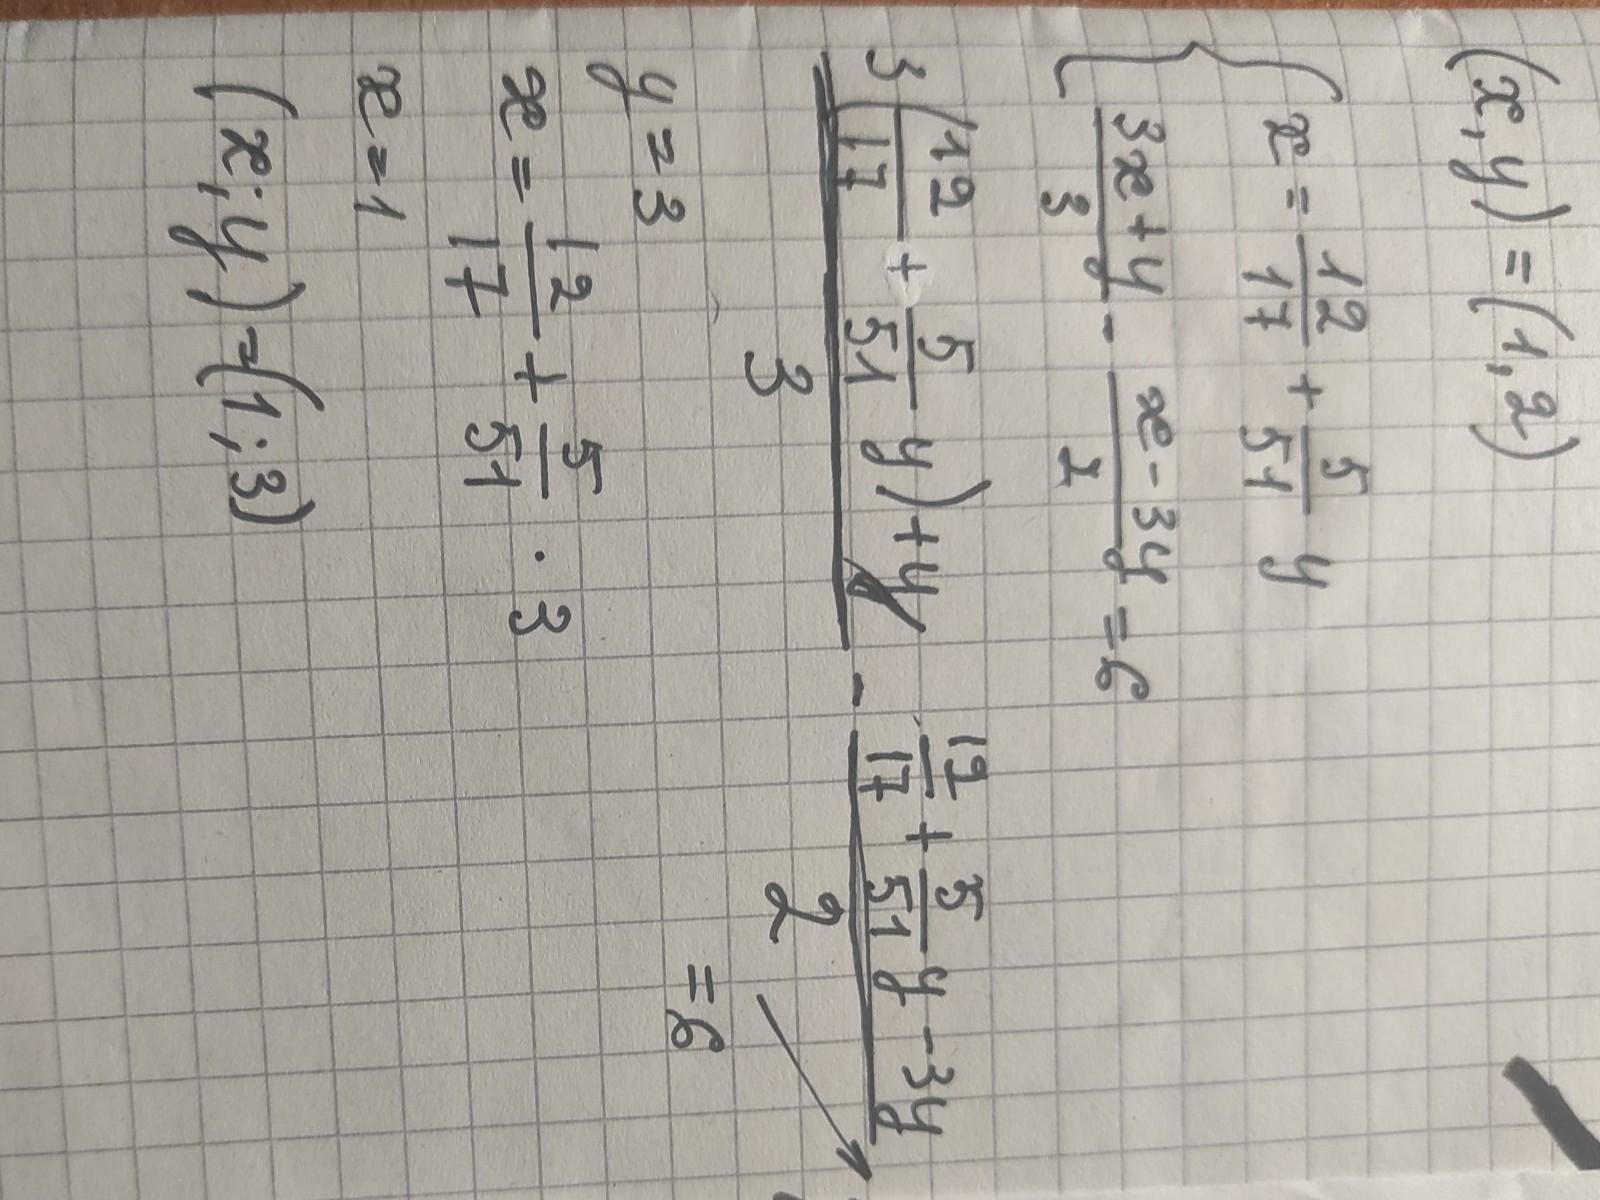 (x, y) = (1, 2)
{ x = 12/17 + 5/51 y
{ (3x+y)/3 - (x-3y)/2 = 6
(3(12/17 + 5/51 y)+y)/3 - (12/17 + 5/51 y - 3y)/2 = 6
y = 3
x = 12/17 + 5/51 · 3
x = 1
(x; y) = (1; 3)